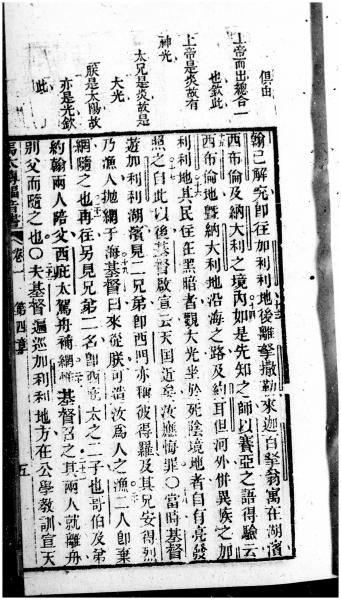 俱由
上帝而出總合一
也欽此
上帝是炎故有
神光
太兄是炎故是
大光
朕是太陽故
亦是光欽
此
翰已解究卽往加利利地後離拏撒勒來迦百拏翁寓在湖濱
西布倫及納大利之境內如是先知之師以賽亞之語得驗云
西布倫地曁納大利地沿海之路及約耳但河外併異族之加
利利地其民住在黑暗者觀大光坐於死陰境地者自有亮發
照之自此以後基督啟宣云天国近矣汝應悔罪○當時基督
遊加利利湖濱見二兄弟卽西門亦稱彼得羅及其兄安得烈
乃漁人拋網于海基督曰來從朕可造汝為人之漁二人卽棄
網隨之也再往另見兄弟二名卽西庇太之二子也哥伯及弟
約翰兩人陪父西庇太駕舟補網時基督召之其兩人就離舟
別父而隨之也○夫基督遍巡加利利地方在公學教訓宣天
馬太傳福音書 卷一 第四章 五